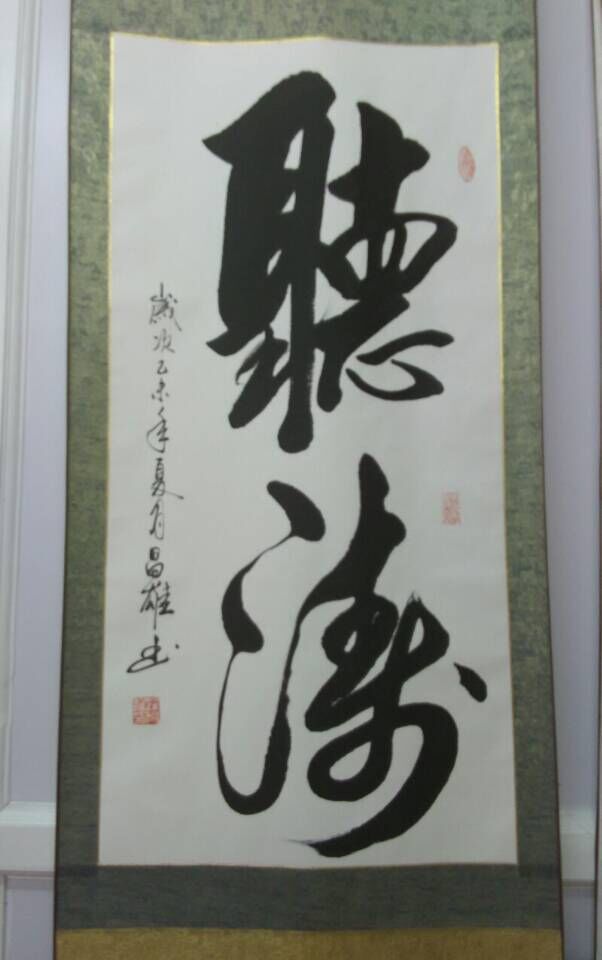 聽濤
歲次乙未年夏月昌雄书